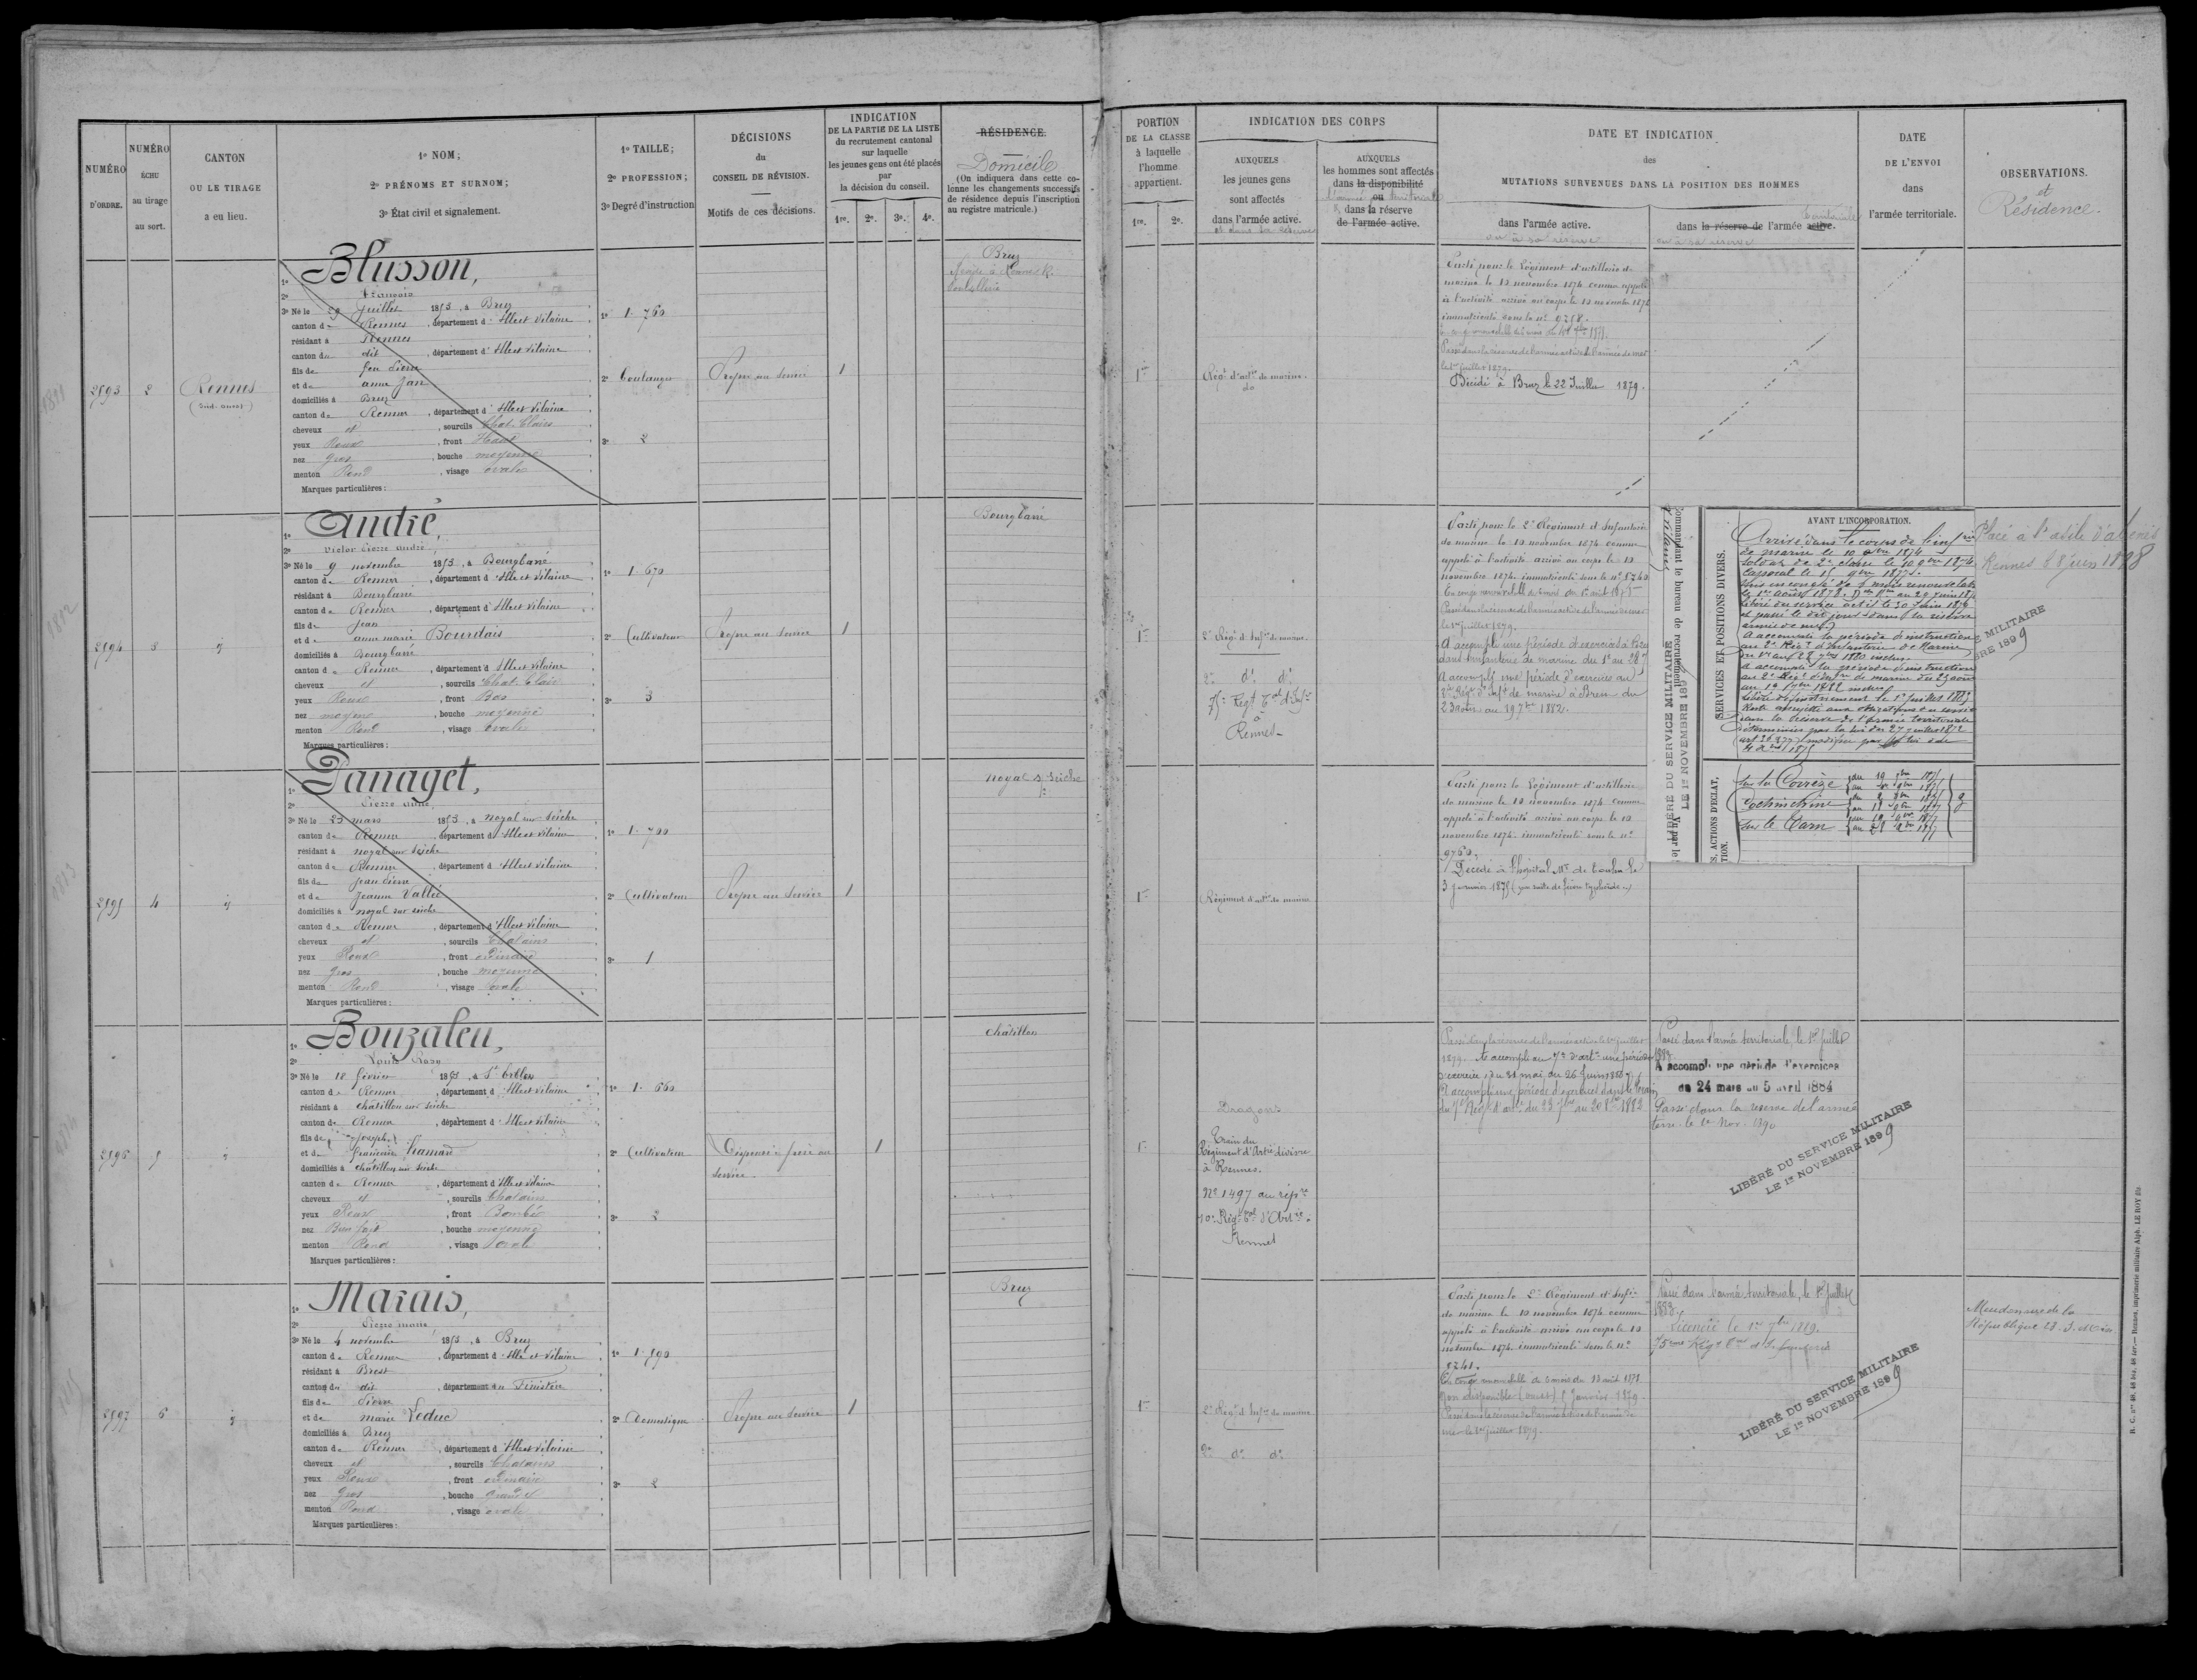 NUMÉRO
D'ORDRE.
NUMÉRO
ÉCHU
au tirage
au sort.
CANTON
OU LE TIRAGE
a eu lieu.
1º NOM;
2º PRÉNOMS ET SURNOM;
3º État civil et signalement.
1º TAILLE;
2º PROFESSION;
3º Degré d'instruction
DÉCISIONS
du
CONSEIL DE RÉVISION.
Motifs de ces décisions.
INDICATION
DE LA PARTIE DE LA LISTE
du recrutement cantonal
sur laquelle
les jeunes gens ont été placés
par
la décision du conseil.
1re. 2e. 3e. 4e.
RÉSIDENCE.
Domicile
(On indiquera dans cette co-
lonne les changements successifs
de résidence depuis l'inscription
au registre matricule.)
PORTION
DE LA CLASSE
à laquelle
l'homme
appartient.
1re. 2e.
INDICATION DES CORPS
AUXQUELS
les jeunes gens
sont affectés
dans l'armée active.
et dans la réserve
AUXQUELS
les hommes sont affectés
dans la disponibilité
ou
dans la réserve
de l'armée active.
DATE ET INDICATION
des
MUTATIONS SURVENUES DANS LA POSITION DES HOMMES
dans l'armée active.
ou à sa réserve
dans la réserve de l'armée active.
territoriale
ou à sa réserve
DATE
DE L'ENVOI
dans
l'armée territoriale.
OBSERVATIONS.
et
Résidence.
2893
2
Rennes
(Sud-ouest)
1º Blusson,
2º François
3º Né le 29 Juillet 1853, à Bruz
canton de Rennes, département d'Ille et Vilaine
résidant à Rennes
canton du dit, département d'Ille et Vilaine
fils de feu Pierre
et de anne Jan
domiciliés à Bruz
canton de Rennes, département d'Ille et Vilaine
cheveux et, sourcils Chat. Clairs
yeux Roux, front Haut
nez gros, bouche moyenne
menton Rond, visage ovale
Marques particulières:
1º 1. 760
2º boulanger
3º 2
Propre au service
1
Bruz
1re
Régt d'artie de marine
do
Parti pour le Régiment d'artillerie de
marine le 10 novembre 1874 comme appelé
à l'activité arrivé au corps le 10 novembre 1874
immatriculé sous le nº 9758.
Passé dans la réserve de l'armée active de l'armée de mer
le 1er juillet 1879.
Décédé à Bruz le 22 Juillet 1879.
2894
3
id
1º André,
2º Victor Pierre André
3º Né le 9 novembre 1853, à Bourgbarré
canton de Rennes, département d'Ille et Vilaine
résidant à Bourgbarré
canton de Rennes, département d'Ille et Vilaine
fils de Jean
et de anne marie Bourdais
domiciliés à Bourgbarré
canton de Rennes, département d'Ille et Vilaine
cheveux et, sourcils Chat. Clair
yeux Roux, front Bas
nez moyen, bouche moyenne
menton Rond, visage ovale
Marques particulières:
1º 1. 670
2º Cultivateur
3º 3
Propre au service
1
Bourgbarré
1re
2e Régt d'Infie de marine
2e do do
75e Régt Tal d'Infie
à
Rennes
Parti pour le 2e Régiment d'Infanterie
de marine le 10 novembre 1874 comme
appelé à l'activité arrivé au corps le 10
novembre 1874 immatriculé sous le nº 8240
Passé dans la réserve de l'armée active de l'armée de mer
le 1er juillet 1879.
A accompli une période d'exercices à Brest
dans l'infanterie de marine du 1er au 28 7
A accompli une période d'exercices au
2e Régt d'Infie de marine à Brest du
23 août au 19 7bre 1882.
Commandant le bureau de recrutement
LIBÉRÉ DU SERVICE MILITAIRE
LE 1er NOVEMBRE 189
Vu par le
SERVICES ET POSITIONS DIVERS.
AVANT L'INCORPORATION.
Arrivé dans le corps de l'infie
de marine le 10 9bre 1874
Soldat de 2e classe le 10 9bre 1874
Caporal le 15 9bre 1877.
Libéré du service actif le 30 Juin 1879
et passé le dit jour dans la réserve
armée de mer
A accompli la période d'instruction
au 2e Régt d'Infanterie de Marine
du 1er au 28 7bre 1880 inclus
A accompli la période d'instruction
au 2e Régt d'Infie de marine du 23 août
Libéré définitivement le 1er juillet 1883
dans la réserve de l'armée territoriale
déterminées par la loi du 27 juillet 1872
S, ACTIONS D'ÉCLAT,
TION.
sur la Corrèze
Cochinchine
sur le Tarn
Placé à l'asile d'aliénés
Rennes 8 juin 1898
E MILITAIRE
BRE 1899
2895
4
id
1º Panaget,
2º Pierre Marie
3º Né le 23 mars 1853, à Noyal sur Seiche
canton de Rennes, département d'Ille et Vilaine
résidant à noyal sur Seiche
canton de Rennes, département d'Ille et Vilaine
fils de Jean Pierre
et de Jeanne Vallée
domiciliés à noyal sur seiche
canton de Rennes, département d'Ille et Vilaine
cheveux et, sourcils Chatains
yeux Roux, front ordinaire
nez gros, bouche moyenne
menton Rond, visage ovale
Marques particulières:
1º 1. 700
2º Cultivateur
3º 1
Propre au service
1
Noyal s. Seiche
1re
Régiment d'artie de marine
Parti pour le Régiment d'artillerie
de marine le 10 novembre 1874 comme
appelé à l'activité arrivé au corps le 10
novembre 1874 immatriculé sous le nº
9760.
Décédé à l'hôpital Me de Toulon le
3 Janvier 1875 (par suite de fièvre typhoïde.)
2896
5
id
1º Bouzaleu,
2º Louis
3º Né le 18 février 1853, à St
canton de Rennes, département d'Ille et Vilaine
résidant à chatillon sur seiche
canton de Rennes, département d'Ille et Vilaine
fils de Joseph
et de
domiciliés à chatillon sur seiche
canton de Rennes, département d'Ille et Vilaine
cheveux et, sourcils Chatains
yeux Roux, front Bombé
nez Bien fait, bouche moyenne
menton Rond, visage ovale
Marques particulières:
1º 1. 660
2º Cultivateur
3º 2
Dispensé: frère au
service
1
Chatillon
1re
Dragons
Train du
Régiment d'Artie divisre
à Rennes.
Nº 1497 au répre
10e Régt Tal d'Artie à
Rennes
Passé dans la réserve de l'armée active le 1er juillet
1879. A accompli au 7e d'artie une période
d'exercices du 31 mai au 26 Juin 1880
A accompli une période d'exercices dans le train
du 7e Régt d'artie du 23 7bre au 20 8bre 1882
Passé dans l'armée territoriale, le 1er Juillet
1883
A accompli une période d'exercices
du 24 mars au 5 avril 1884
Passé dans la réserve de l'armée
terre. le 1er Nov. 1890
LIBÉRÉ DU SERVICE MILITAIRE
LE 1er NOVEMBRE 1899
2897
6
id
1º Marais,
2º Pierre marie
3º Né le 4 novembre 1853, à Bruz
canton de Rennes, département d'Ille et Vilaine
résidant à Brest
canton du dit, département du Finistère
fils de Pierre
et de marie Leduc
domiciliés à Bruz
canton de Rennes, département d'Ille et Vilaine
cheveux et, sourcils Chatains
yeux Roux, front ordinaire
nez gros, bouche grande
menton Rond, visage ovale
Marques particulières:
1º 1. 590
2º Domestique
3º 2
Propre au service
1
Bruz
1re
2e Régt d'Infie de marine
2e do do
Parti pour le 2e Régiment d'Infie
de marine le 10 novembre 1874 comme
appelé à l'activité arrivé au corps le 10
novembre 1874 immatriculé sous le nº
8241.
En congé renouvelable de 6 mois du 13 août 1878
Passé dans la réserve de l'armée active de l'armée de
mer le 1er juillet 1879.
Passé dans l'armée territoriale, le 1er Juillet
1883.
Licencié le 1er 7bre 1889.
75ème Régt Tal d'Infanterie
LIBÉRÉ DU SERVICE MILITAIRE
LE 1er NOVEMBRE 1899
Meudon rue de la
République 23
R. C. nos 48, 48 bis, 48 ter. — Rennes, imprimerie militaire Alph. LE ROY fils